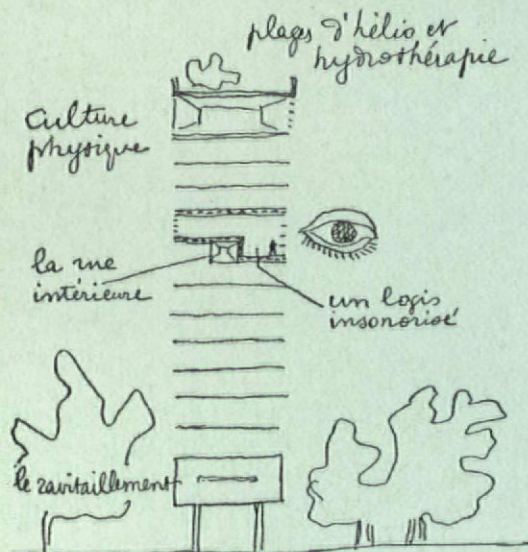 plages d'hélio et
hydrothérapie
culture
physique
la rue
intérieure
un logis
insonorisé
le ravitaillement